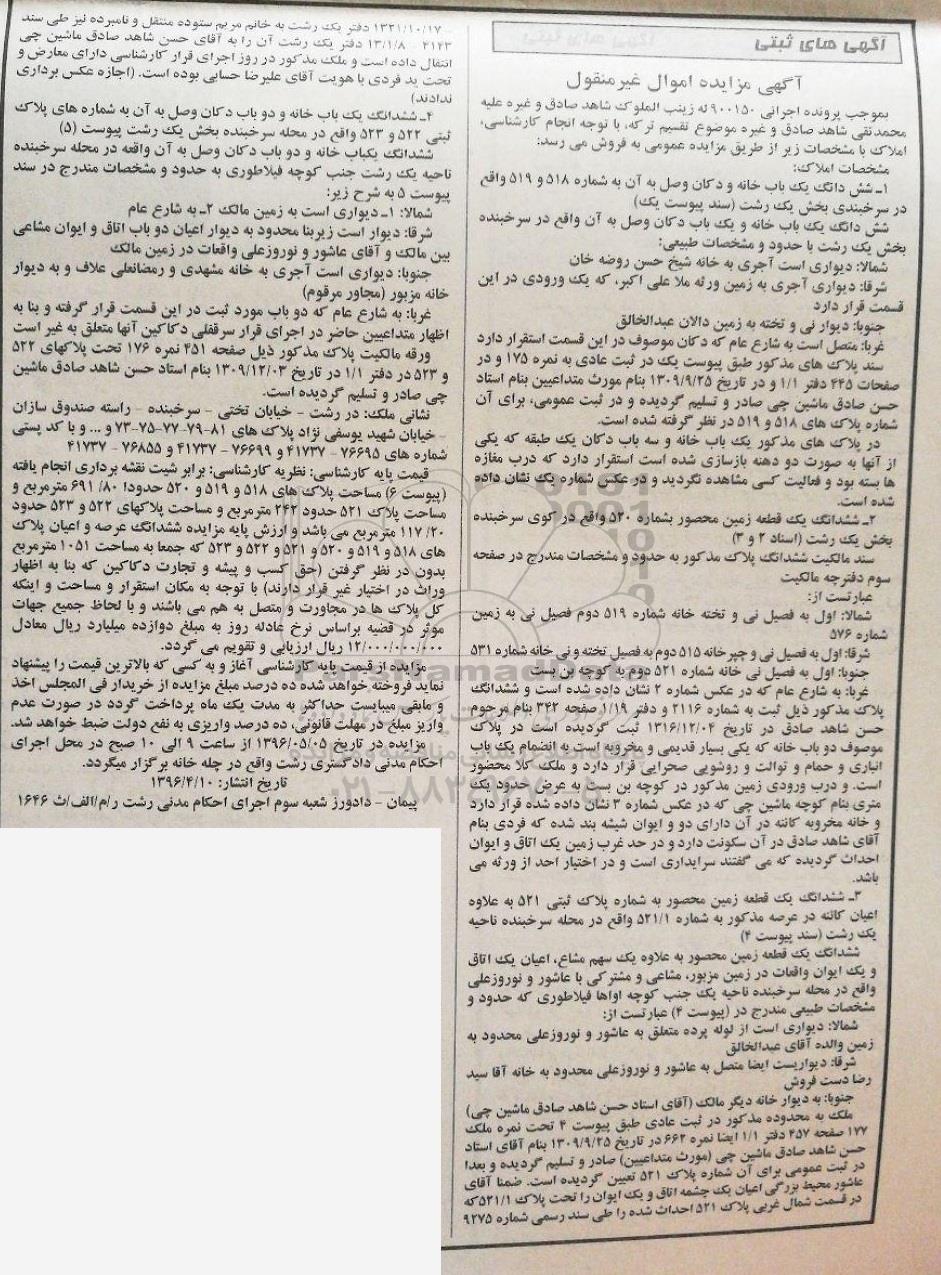 آگهی های ثبتی
آگهی مزایده اموال غیرمنقول
بموجب پرونده اجرائی ۹۰۰۱۵۰ له زینب الملوک شاهد صادق و غیره علیه
محمدتقی شاهد صادق و غیره موضوع تقسیم ترکه، با توجه انجام کارشناسی،
املاک با مشخصات زیر از طریق مزایده عمومی به فروش می رسد:
مشخصات املاک:
۱ـ شش دانگ یک باب خانه و دکان وصل به آن به شماره ۵۱۸ و ۵۱۹ واقع
در سرخبندی بخش یک رشت (سند پیوست یک)
شش دانگ یک باب خانه و یک باب دکان وصل به آن واقع در سرخبنده
بخش یک رشت با حدود و مشخصات طبیعی:
شمالا: دیواری است آجری به خانه شیخ حسن روضه خان
شرقا: دیواری آجری به زمین ورثه ملا علی اکبر، که یک ورودی در این
قسمت قرار دارد
جنوبا: دیوار نی و تخته به زمین دالان عبدالخالق
غربا: متصل است به شارع عام که دکان موصوف در این قسمت استقرار دارد
سند پلاک های مذکور طبق پیوست یک در ثبت عادی به نمره ۱۷۵ و در
صفحات ۴۴۵ دفتر ۱/۱ و در تاریخ ۱۳۰۹/۹/۲۵ بنام مورث متداعیین بنام استاد
حسن صادق ماشین چی صادر و تسلیم گردیده و در ثبت عمومی، برای آن
شماره پلاک های ۵۱۸ و ۵۱۹ در نظر گرفته شده است.
در پلاک های مذکور یک باب خانه و سه باب دکان یک طبقه که یکی
از آنها به صورت دو دهنه بازسازی شده است استقرار دارد که درب مغازه
ها بسته بود و فعالیت کسی مشاهده نگردید و در عکس شماره یک نشان داده
شده است.
۲ـ ششدانگ یک قطعه زمین محصور بشماره ۵۲۰ واقع در کوی سرخبنده
بخش یک رشت (اسناد ۲ و ۳)
سند مالکیت ششدانگ پلاک مذکور به حدود و مشخصات مندرج در صفحه
سوم دفترچه مالکیت
عبارتست از:
شمالا: اول به فصیل نی و تخته خانه شماره ۵۱۹ دوم فصیل نی به زمین
شماره ۵۷۶
شرقا: اول به فصیل نی و چپر خانه ۵۱۵ دوم به فصیل تخته و نی خانه شماره ۵۳۱
جنوبا: اول به فصیل نی خانه شماره ۵۲۱ دوم به کوچه بن بست
غربا: به شارع عام که در عکس شماره ۲ نشان داده شده است و ششدانگ
پلاک مذکور ذیل ثبت به شماره ۲۱۱۶ و دفتر ۱/۱۹ صفحه ۳۴۲ بنام مرحوم
حسن شاهد صادق در تاریخ ۱۳۱۶/۱۲/۰۴ ثبت گردیده است در پلاک
موصوف دو باب خانه که یکی بسیار قدیمی و مخروبه است به انضمام یک باب
انباری و حمام و توالت و روشویی صحرایی قرار دارد و ملک کلا محصور
است. و درب ورودی زمین مذکور در کوچه بن بست به عرض حدود یک
متری بنام کوچه ماشین چی که در عکس شماره ۳ نشان داده شده قرار دارد
و خانه مخروبه کائنه در آن دارای دو و ایوان شیشه بند شده که فردی بنام
آقای شاهد صادق در آن سکونت دارد و در حد غرب زمین یک اتاق و ایوان
احداث گردیده که می گفتند سرایداری است و در اختیار احد از ورثه می
باشد.
۳ـ ششدانگ یک قطعه زمین محصور به شماره پلاک ثبتی ۵۲۱ به علاوه
اعیان کائنه در عرصه مذکور به شماره ۵۲۱/۱ واقع در محله سرخبنده ناحیه
یک رشت (سند پیوست ۴)
ششدانگ یک قطعه زمین محصور به علاوه یک سهم مشاع، اعیان یک اتاق
و یک ایوان واقعات در زمین مزبور، مشاعی و مشترکی با عاشور و نوروزعلی
واقع در محله سرخبنده ناحیه یک جنب کوچه اواها فیلاطوری که حدود و
مشخصات طبیعی مندرج در (پیوست ۴) عبارتست از:
شمالا: دیواری است از لوله پرده متعلق به عاشور و نوروزعلی محدود به
زمین والده آقای عبدالخالق
شرقا: دیواریست ایضا متصل به عاشور و نوروزعلی محدود به خانه آقا سید
رضا دست فروش
جنوبا: به دیوار خانه دیگر مالک (آقای استاد حسن شاهد صادق ماشین چی)
ملک به محدوده مذکور در ثبت عادی طبق پیوست ۴ تحت نمره ملک
۱۷۷ صفحه ۴۵۷ دفتر ۱/۱ ایضا نمره ۶۶۲ در تاریخ ۱۳۰۹/۹/۲۵ بنام آقای استاد
حسن شاهد صادق ماشین چی (مورث متداعیین) صادر و تسلیم گردیده و بعدا
در ثبت عمومی برای آن شماره پلاک ۵۲۱ تعیین گردیده است. ضمنا آقای
عاشور محیط بزرگی اعیان یک چشمه اتاق و یک ایوان را تحت پلاک ۵۲۱/۱ که
در قسمت شمال غربی پلاک ۵۲۱ احداث شده را طی سند رسمی شماره ۹۲۷۵
- ۱۳۳۱/۱۰/۱۷ دفتر یک رشت به خانم مریم ستوده منتقل و نامبرده نیز طی سند
۲۱۴۳ - ۱۳/۱/۸ دفتر یک رشت آن را به آقای حسن شاهد صادق ماشین چی
انتقال داده است و ملک مذکور در روز اجرای قرار کارشناسی دارای معارض و
تحت ید فردی با هویت آقای علیرضا حسابی بوده است. (اجازه عکس برداری
ندادند)
۴ـ ششدانگ یک باب خانه و دو باب دکان وصل به آن به شماره های پلاک
ثبتی ۵۲۲ و ۵۲۳ واقع در محله سرخبنده بخش یک رشت پیوست (۵)
ششدانگ یکباب خانه و دو باب دکان وصل به آن واقعه در محله سرخبنده
ناحیه یک رشت جنب کوچه فیلاطوری به حدود و مشخصات مندرج در سند
پیوست ۵ به شرح زیر:
شمالا: ۱ـ دیواری است به زمین مالک ۲ـ به شارع عام
شرقا: دیوار است زیربنا محدود به دیوار اعیان دو باب اتاق و ایوان مشاعی
بین مالک و آقای عاشور و نوروزعلی واقعات در زمین مالک
جنوبا: دیواری است آجری به خانه مشهدی و رمضانعلی علاف و به دیوار
خانه مزبور (مجاور مرقوم)
غربا: به شارع عام که دو باب مورد ثبت در این قسمت قرار گرفته و بنا به
اظهار متداعیین حاضر در اجرای قرار سرقفلی دکاکین آنها متعلق به غیر است
ورقه مالکیت پلاک مذکور ذیل صفحه ۴۵۱ نمره ۱۷۶ تحت پلاکهای ۵۲۲
و ۵۲۳ در دفتر ۱/۱ در تاریخ ۱۳۰۹/۱۲/۰۳ بنام استاد حسن شاهد صادق ماشین
چی صادر و تسلیم گردیده است.
نشانی ملک: در رشت - خیابان تختی - سرخبنده - راسته صندوق سازان
- خیابان شهید یوسفی نژاد پلاک های ۸۱-۷۹-۷۷-۷۵-۷۳ و ... و با کد پستی
شماره های ۷۶۶۹۵ - ۴۱۷۳۷ و ۷۶۶۹۹ - ۴۱۷۳۷ و ۷۶۸۵۵ - ۴۱۷۳۷
قیمت پایه کارشناسی: نظریه کارشناسی: برابر شیت نقشه برداری انجام یافته
(پیوست ۶) مساحت پلاک های ۵۱۸ و ۵۱۹ و ۵۲۰ حدودا ۸۰/ ۶۹۱ مترمربع و
مساحت پلاک ۵۲۱ حدود ۲۴۲ مترمربع و مساحت پلاکهای ۵۲۲ و ۵۲۳ حدود
۲۰/ ۱۱۷ مترمربع می باشد و ارزش پایه مزایده ششدانگ عرصه و اعیان پلاک
های ۵۱۸ و ۵۱۹ و ۵۲۰ و ۵۲۱ و ۵۲۲ و ۵۲۳ که جمعا به مساحت ۱۰۵۱ مترمربع
بدون در نظر گرفتن (حق کسب و پیشه و تجارت دکاکین که بنا به اظهار
وراث در اختیار غیر قرار دارند) با توجه به مکان استقرار و مساحت و اینکه
کل پلاک ها در مجاورت و متصل به هم می باشند و با لحاظ جمیع جهات
موثر در قضیه براساس نرخ عادله روز به مبلغ دوازده میلیارد ریال معادل
۱۲/۰۰۰/۰۰۰/۰۰۰ ریال ارزیابی و تقویم می گردد.
مزایده از قیمت پایه کارشناسی آغاز و به کسی که بالاترین قیمت را پیشنهاد
نماید فروخته خواهد شد ده درصد مبلغ مزایده از خریدار فی المجلس اخذ
و مابقی میبایست حداکثر به مدت یک ماه پرداخت گردد در صورت عدم
واریز مبلغ در مهلت قانونی، ده درصد واریزی به نفع دولت ضبط خواهد شد.
مزایده در تاریخ ۱۳۹۶/۰۵/۰۵ از ساعت ۹ الی ۱۰ صبح در محل اجرای
احکام مدنی دادگستری رشت واقع در چله خانه برگزار میگردد.
تاریخ انتشار: ۱۳۹۶/۴/۱۰
پیمان - دادورز شعبه سوم اجرای احکام مدنی رشت ر/م/الف/ث ۱۶۴۶
ParsNamadData